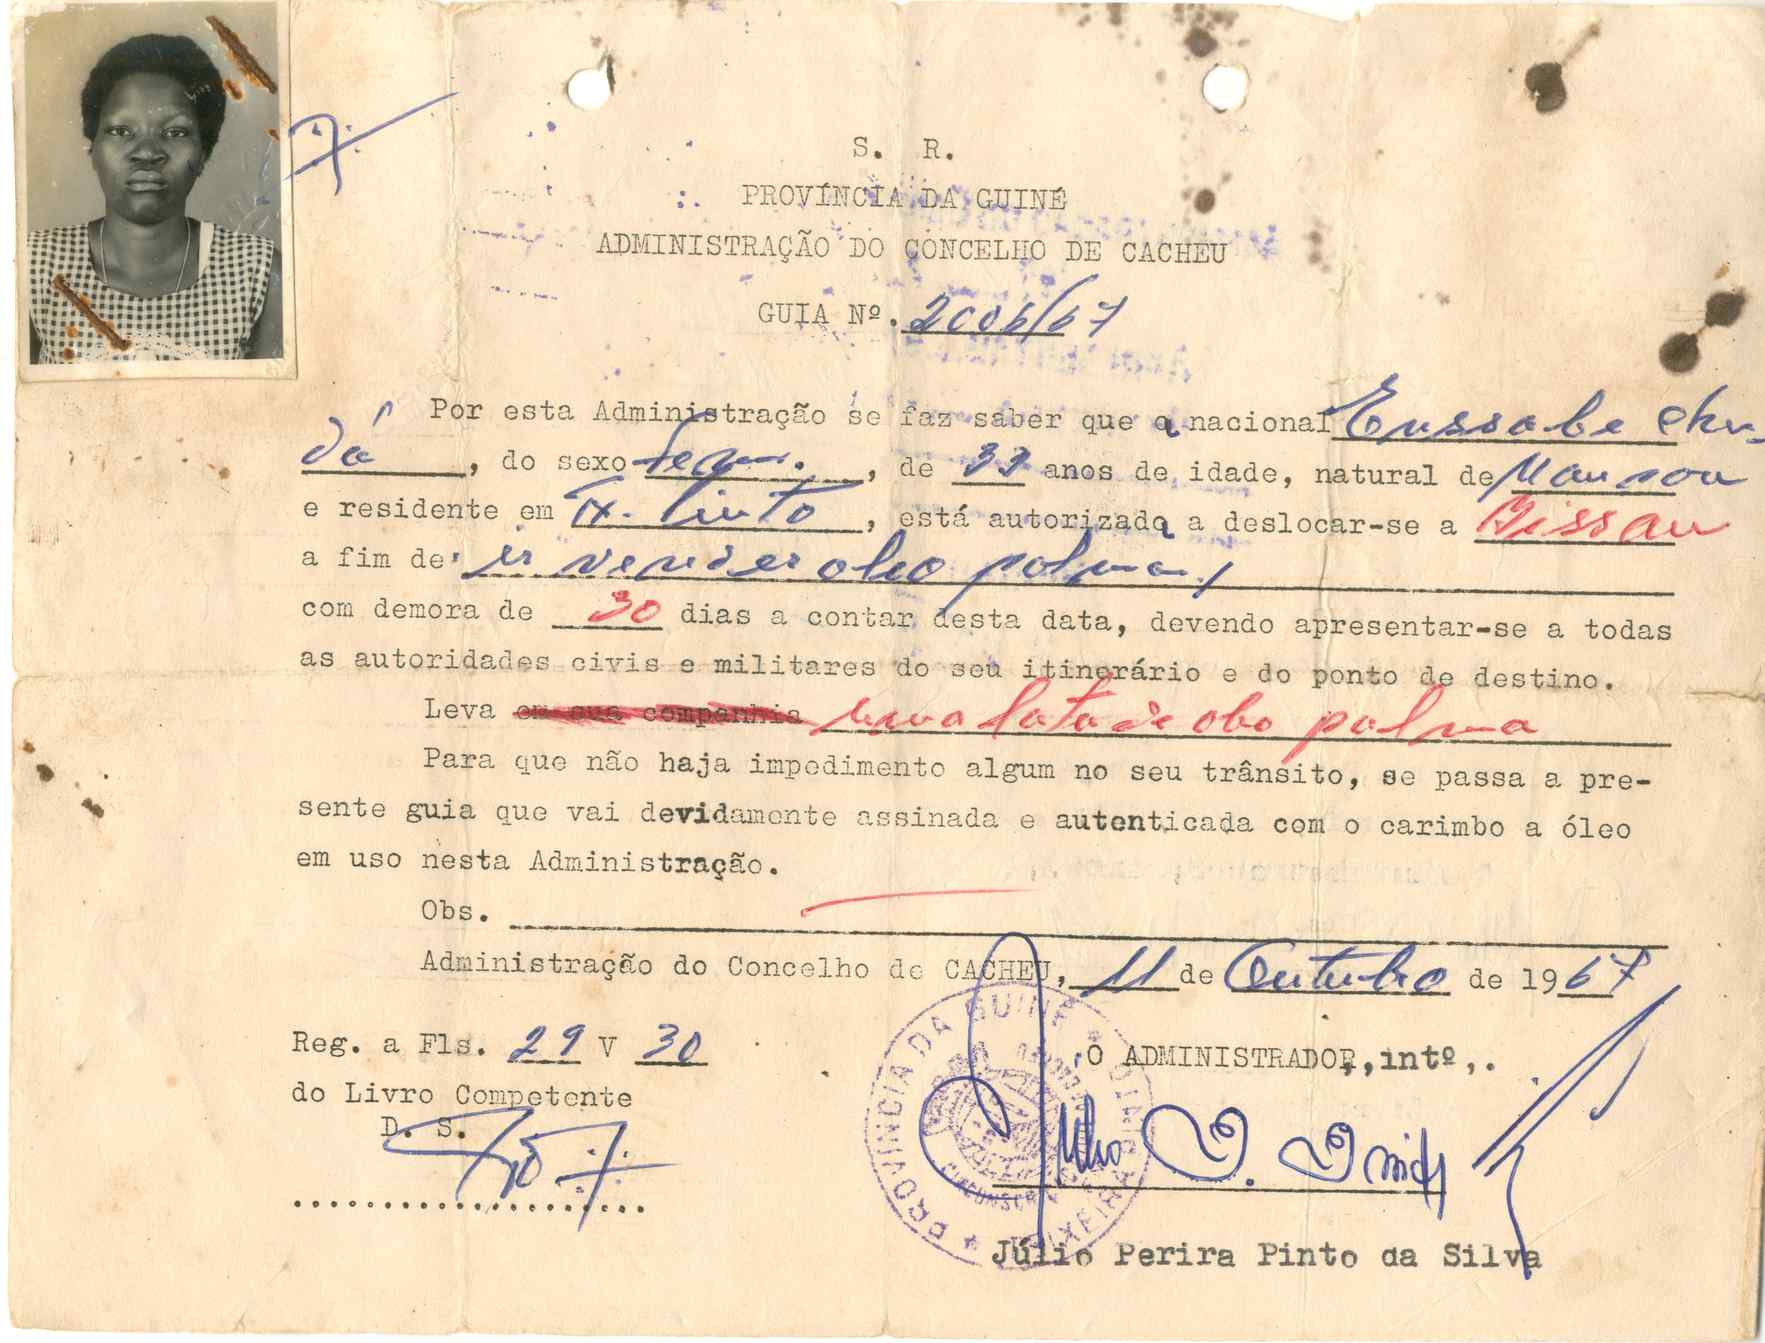 S. R.
PROVÍNCIA DA GUINÉ
ADMINISTRAÇÃO DO CONCELHO DE CACHEU
GUIA Nº. 2006/67
Por esta Administração se faz saber que a nacional Eussabe
, do sexo fem. , de 33 anos de idade, natural de Mansoa
e residente em T. Pinto , está autorizada a deslocar-se a Bissau
a fim de ir vender oleo palma
com demora de 30 dias a contar desta data, devendo apresentar-se a todas
as autoridades civis e militares do seu itinerário e do ponto de destino.
Leva em sua companhia uma lata de oleo palma
Para que não haja impedimento algum no seu trânsito, se passa a pre-
sente guia que vai devidamente assinada e autenticada com o carimbo a óleo
em uso nesta Administração.
Obs.
Administração do Concelho de CACHEU, 11 de Outubro de 1967
Reg. a Fls. 29 V 30
do Livro Competente
D. S.
O ADMINISTRADOR, intº,.
PROVINCIA DA GUINÉ * TEIXEIRA PINTO *
Júlio Perira Pinto da Silva